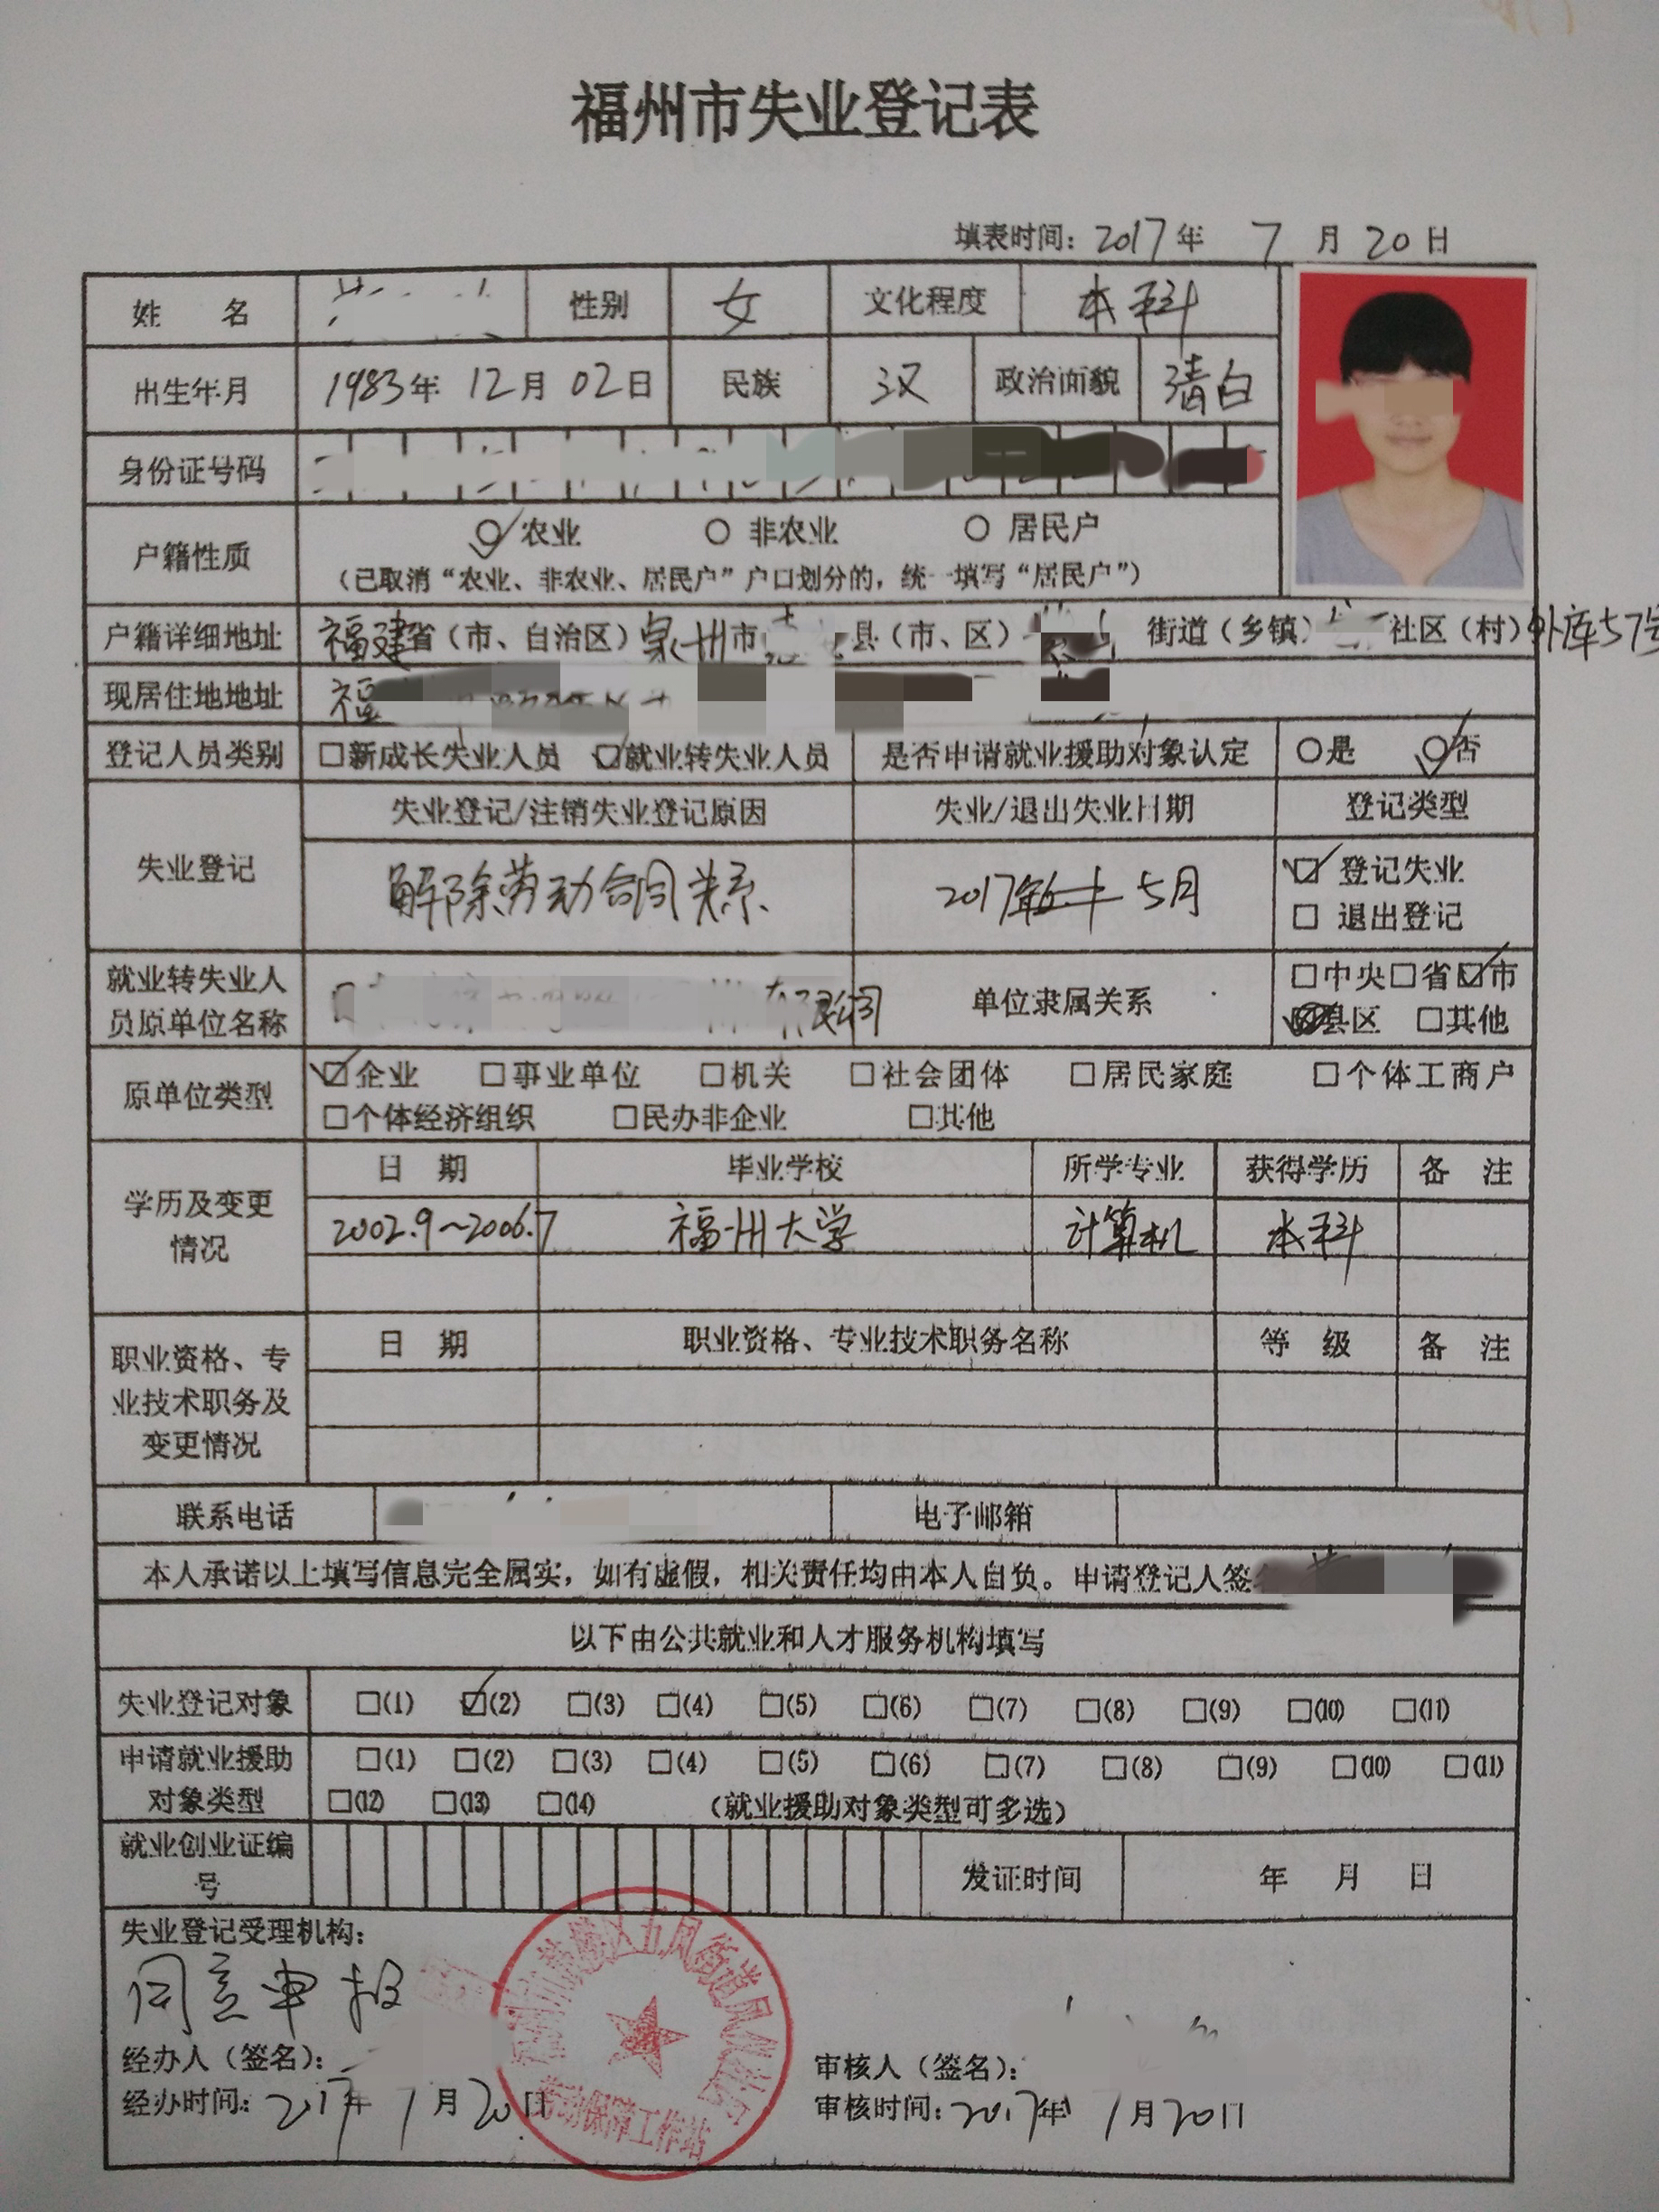 福州市失业登记表
填表时间：2017年 7 月 20日
姓 名 性别 女 文化程度 本科
出生年月 1983年 12月 02日 民族 汉 政治面貌 清白
身份证号码
户籍性质 ○农业 ○ 非农业 ○ 居民户
（已取消“农业、非农业、居民户”户口划分的，统一填写“居民户”）
户籍详细地址 福建省（市、自治区）泉州市 县（市、区） 街道（乡镇） 社区（村）外库57号
现居住地地址 福
登记人员类别 □新成长失业人员 ☑就业转失业人员 是否申请就业援助对象认定 ○是 ○否
失业登记/注销失业登记原因 失业/退出失业日期 登记类型
失业登记 解除劳动合同关系 2017年 5月 ☑ 登记失业
□ 退出登记
就业转失业人员原单位名称 有限公司 单位隶属关系 □中央□省☑市
县区 □其他
原单位类型 ☑企业 □事业单位 □机关 □社会团体 □居民家庭 □个体工商户
□个体经济组织 □民办非企业 □其他
学历及变更情况 日 期 毕业学校 所学专业 获得学历 备 注
2002.9~2006.7 福州大学 计算机 本科
职业资格、专业技术职务及变更情况 日 期 职业资格、专业技术职务名称 等 级 备 注
联系电话 电子邮箱
本人承诺以上填写信息完全属实，如有虚假，相关责任均由本人自负。申请登记人签名
以下由公共就业和人才服务机构填写
失业登记对象 □(1) ☑(2) □(3) □(4) □(5) □(6) □(7) □(8) □(9) □(10) □(11)
申请就业援助对象类型 □(1) □(2) □(3) □(4) □(5) □(6) □(7) □(8) □(9) □(10) □(11)
□(12) □(13) □(14) （就业援助对象类型可多选）
就业创业证编号 发证时间 年 月 日
失业登记受理机构：
同意申报
经办人（签名）： 审核人（签名）：
经办时间：2017年 7月20日 审核时间：2017年 7月20日
福州市鼓楼区五凤街道
劳动保障工作站